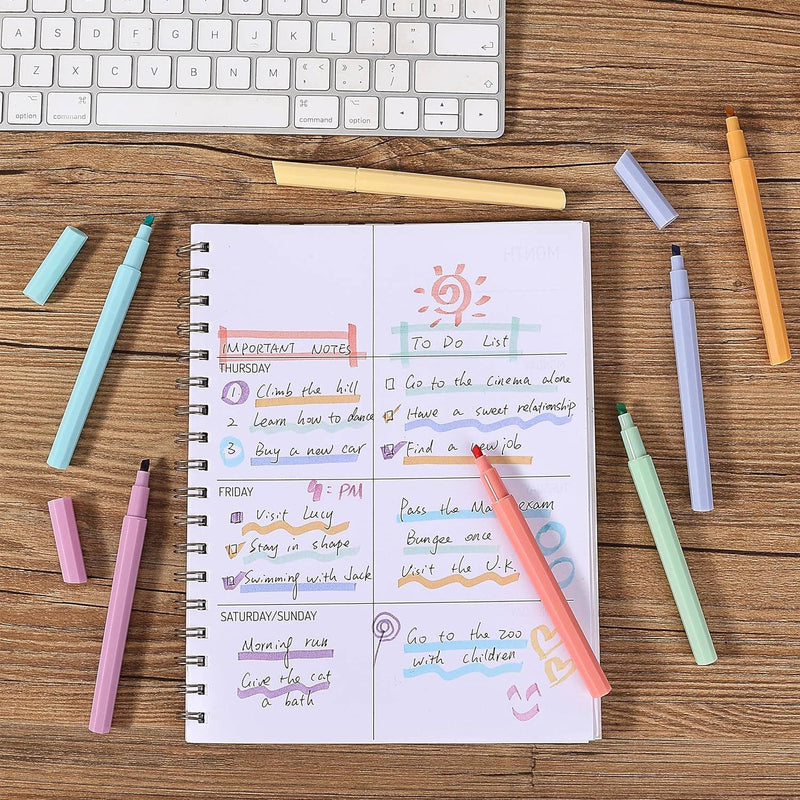 A S D F G H J K L
Z X C V B N M < , > . ? /
option command command option
MONTH
IMPORTANT NOTES
To Do List
THURSDAY
1 Climb the hill
2 Learn how to dance
3 Buy a new car
Go to the cinema alone
Have a sweet relationship
Find a new job
FRIDAY
9: PM
Visit Lucy
Stay in shape
Swimming with Jack
Pass the exam
Bungee once
Visit the U.K.
SATURDAY/SUNDAY
Morning run
Give the cat
a bath
Go to the zoo
with children